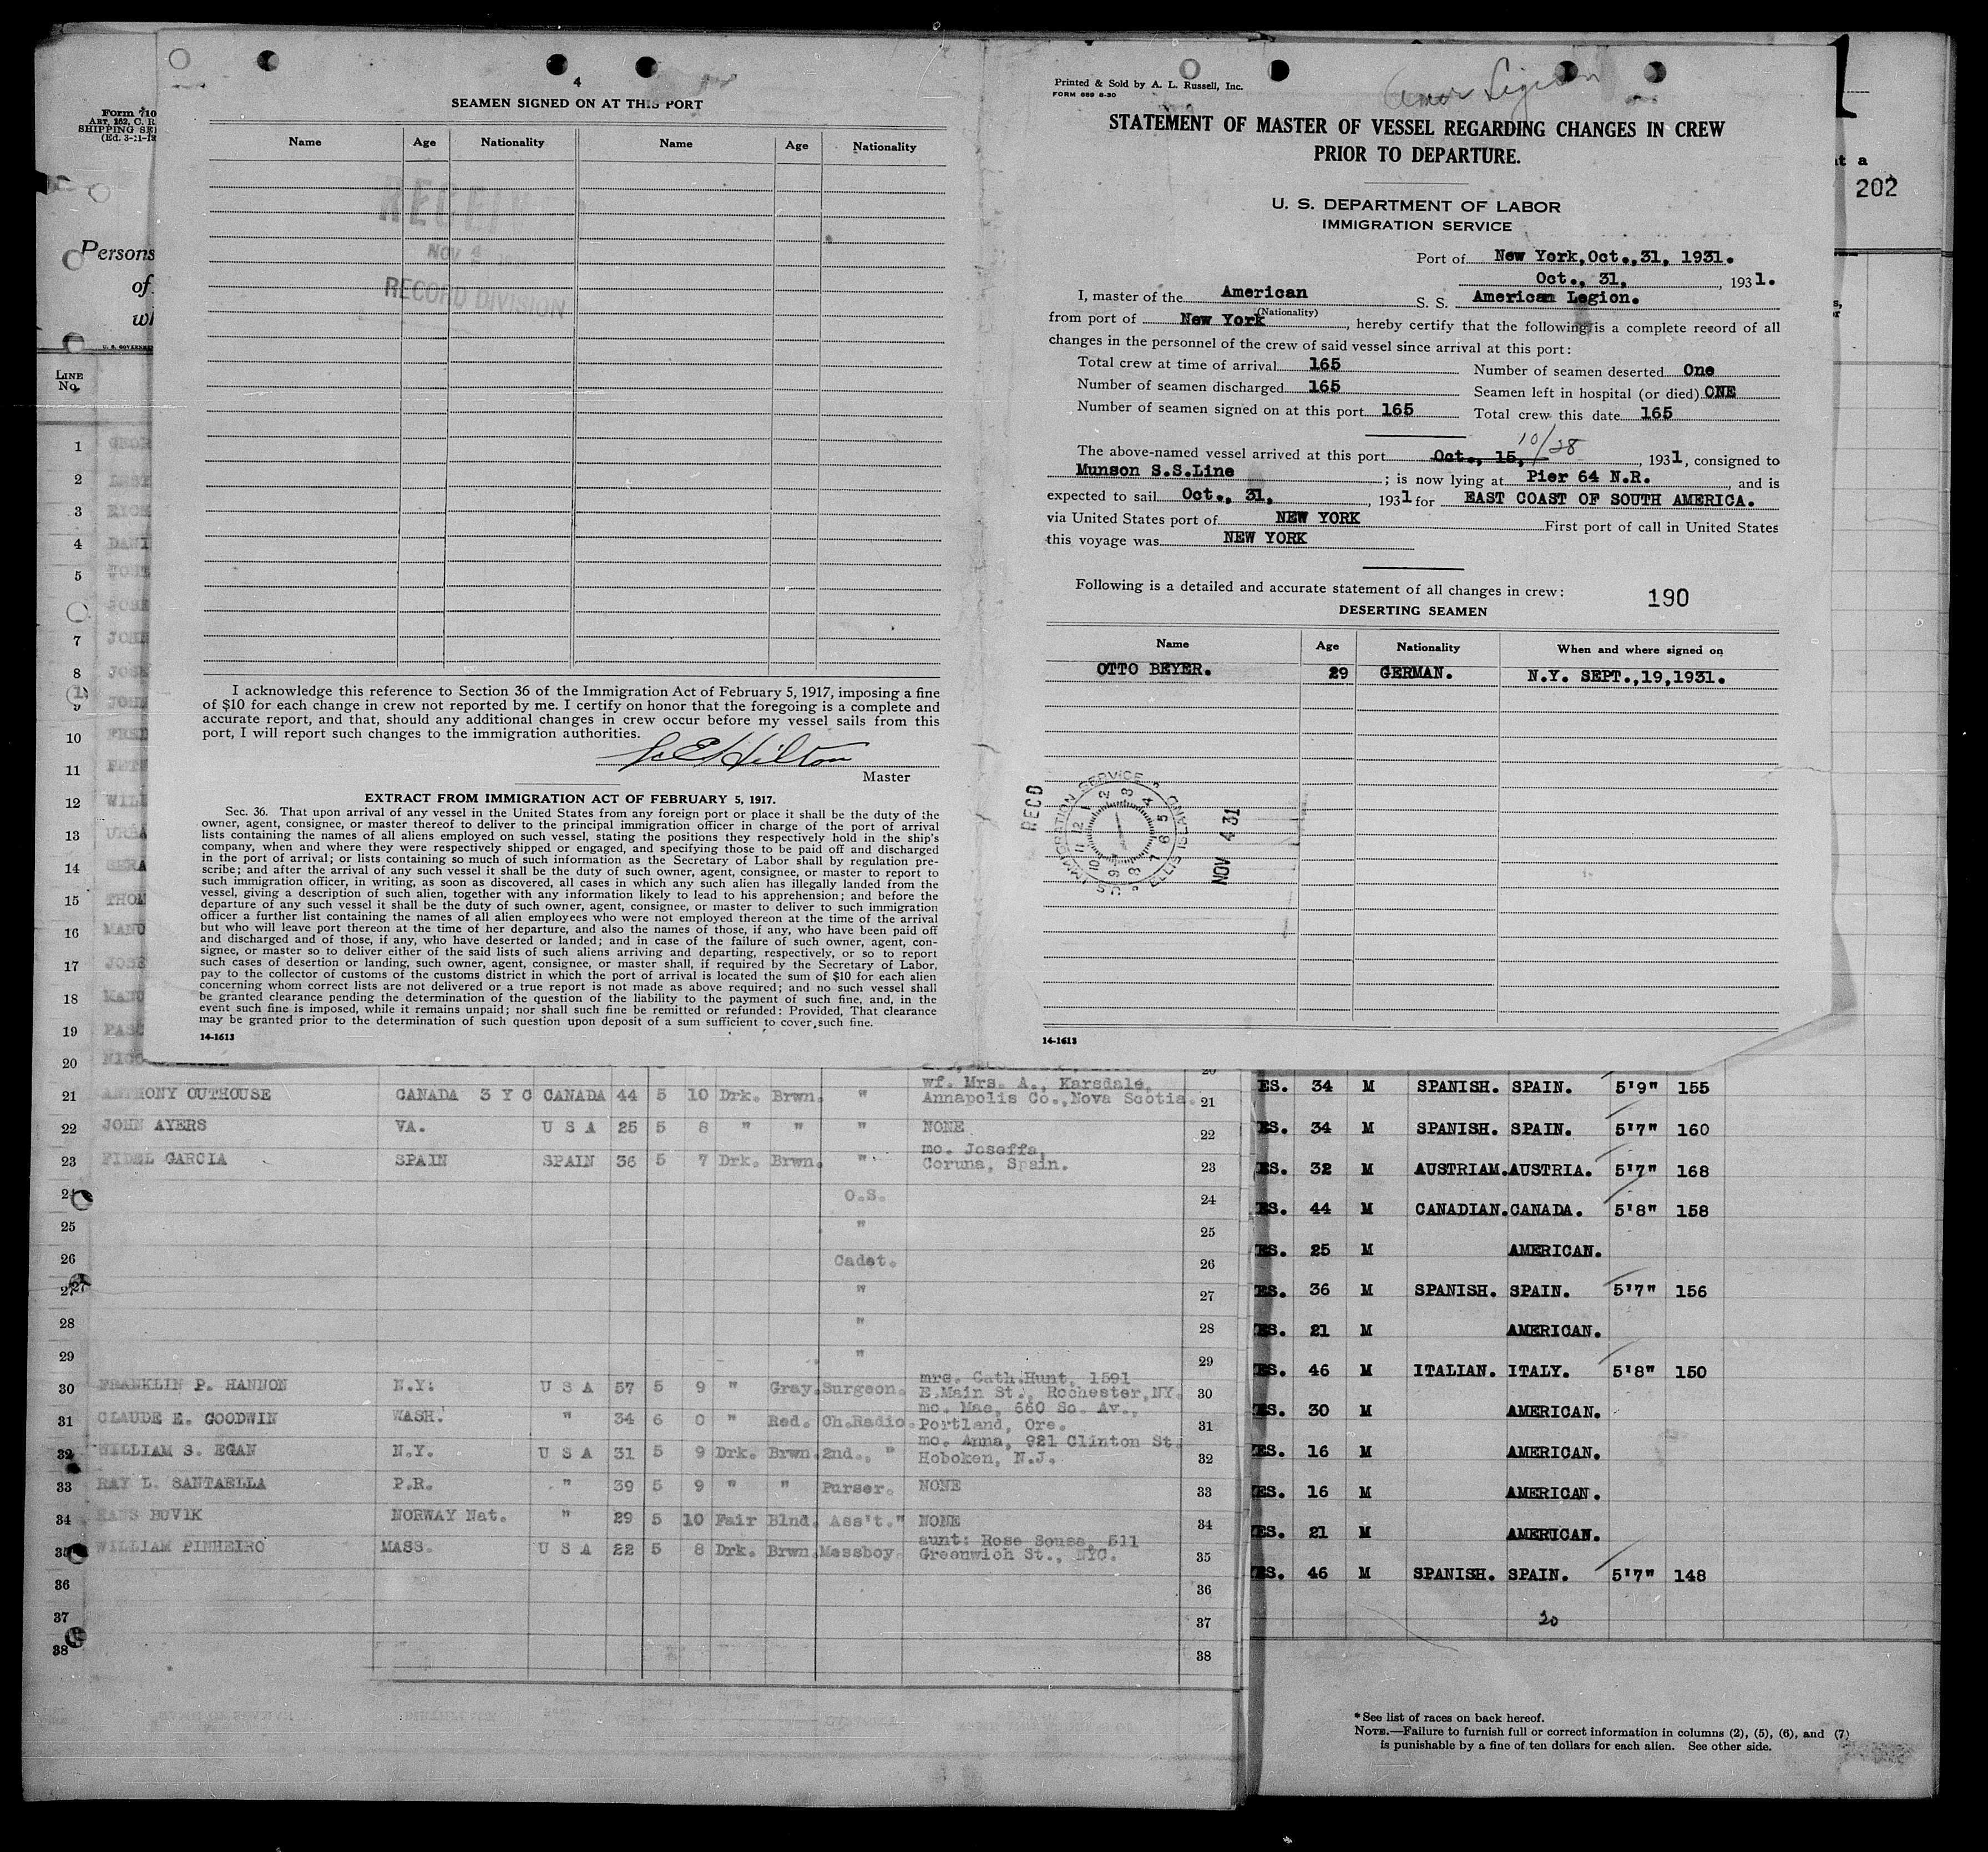 4
SEAMEN SIGNED ON AT THIS PORT
Name Age Nationality Name Age Nationality
RECEIVED
NOV 4
RECORD DIVISION
I acknowledge this reference to Section 36 of the Immigration Act of February 5, 1917, imposing a fine
of $10 for each change in crew not reported by me. I certify on honor that the foregoing is a complete and
accurate report, and that, should any additional changes in crew occur before my vessel sails from this
port, I will report such changes to the immigration authorities.
Hilton
Master
EXTRACT FROM IMMIGRATION ACT OF FEBRUARY 5, 1917.
Sec. 36. That upon arrival of any vessel in the United States from any foreign port or place it shall be the duty of the
owner, agent, consignee, or master thereof to deliver to the principal immigration officer in charge of the port of arrival
lists containing the names of all aliens employed on such vessel, stating the positions they respectively hold in the ship's
company, when and where they were respectively shipped or engaged, and specifying those to be paid off and discharged
in the port of arrival; or lists containing so much of such information as the Secretary of Labor shall by regulation pre-
scribe; and after the arrival of any such vessel it shall be the duty of such owner, agent, consignee, or master to report to
such immigration officer, in writing, as soon as discovered, all cases in which any such alien has illegally landed from the
vessel, giving a description of such alien, together with any information likely to lead to his apprehension; and before the
departure of any such vessel it shall be the duty of such owner, agent, consignee, or master to deliver to such immigration
officer a further list containing the names of all alien employees who were not employed thereon at the time of the arrival
but who will leave port thereon at the time of her departure, and also the names of those, if any, who have been paid off
and discharged and of those, if any, who have deserted or landed; and in case of the failure of such owner, agent, con-
signee, or master so to deliver either of the said lists of such aliens arriving and departing, respectively, or so to report
such cases of desertion or landing, such owner, agent, consignee, or master shall, if required by the Secretary of Labor,
pay to the collector of customs of the customs district in which the port of arrival is located the sum of $10 for each alien
concerning whom correct lists are not delivered or a true report is not made as above required; and no such vessel shall
be granted clearance pending the determination of the question of the liability to the payment of such fine, and, in the
event such fine is imposed, while it remains unpaid; nor shall such fine be remitted or refunded: Provided, That clearance
may be granted prior to the determination of such question upon deposit of a sum sufficient to cover such fine.
14-1613
Printed & Sold by A. L. Russell, Inc.
FORM 689 6-30
Amer Legion
STATEMENT OF MASTER OF VESSEL REGARDING CHANGES IN CREW
PRIOR TO DEPARTURE.
U. S. DEPARTMENT OF LABOR
IMMIGRATION SERVICE
Port of New York, Oct., 31, 1931.
Oct., 31, , 1931.
I, master of the American S. S. American Legion.
(Nationality)
from port of New York , hereby certify that the following is a complete record of all
changes in the personnel of the crew of said vessel since arrival at this port:
Total crew at time of arrival 165 Number of seamen deserted One
Number of seamen discharged 165 Seamen left in hospital (or died) ONE
Number of seamen signed on at this port 165 Total crew this date 165
10/28
The above-named vessel arrived at this port Oct., 15, , 1931, consigned to
Munson S.S.Line ; is now lying at Pier 64 N.R. , and is
expected to sail Oct., 31, , 1931 for EAST COAST OF SOUTH AMERICA.
via United States port of NEW YORK First port of call in United States
this voyage was NEW YORK
Following is a detailed and accurate statement of all changes in crew:
190
DESERTING SEAMEN
Name Age Nationality When and where signed on
OTTO BEYER. 29 GERMAN. N.Y. SEPT.,19,1931.
RECD
U.S. IMMIGRATION SERVICE ELLIS ISLAND
1 2 3 4 5 6 7 8 9 10 11 12
NOV 4 31
14-1613
Form 710
SHIPPING SE
(Ed. 3-21-
Persons
of
wh
LINE
No.
1 GEOR
2
3 RICH
4 DANI
5 JOHN
JOSE
7 JOHN
8 JOSE
9 JOHN
10 FRED
11 PETE
12 WILL
13 URBA
14 SERA
15 THOM
16 MANU
17 JOSE
18 MANU
19 PASC
20 NICO
21 ANTHONY OUTHOUSE CANADA 3 Y C CANADA 44 5 10 Drk. Brwn. " wf. Mrs. A., Karsdale, Annapolis Co.,Nova Scotia. 21
22 JOHN AYERS VA. U S A 25 5 8 " " " NONE 22
23 FIDEL GARCIA SPAIN SPAIN 36 5 7 Drk. Brwn. " mo. Joseffa, Coruna, Spain. 23
24 O.S. 24
25 " 25
26 Cadet. 26
27 " 27
28 " 28
29 " 29
30 FRANKLIN P. HANNON N.Y. U S A 57 5 9 " Gray. Surgeon. mrs. Cath.Hunt, 1591 E.Main St., Rochester,NY. 30
31 CLAUDE E. GOODWIN WASH. " 34 6 0 " Red. Ch.Radio. mo. Mae, 660 So. Av., Portland, Ore. 31
32 WILLIAM S. EGAN N.Y. U S A 31 5 9 Drk. Brwn. 2nd., " mo. Anna, 921 Clinton St. Hoboken, N.J. 32
33 RAY L. SANTAELLA P.R. " 39 5 9 " " Purser. NONE 33
34 HANS BUVIK NORWAY Nat. " 29 5 10 Fair Blnd. Ass't." NONE 34
35 WILLIAM PINHEIRO MASS. U S A 22 5 8 Drk. Brwn. Messboy. aunt: Rose Sousa, 511 Greenwich St., NYC. 35
36 36
37 37
38 38
1
at a
202
ES. 34 M SPANISH. SPAIN. 5'9" 155
ES. 34 M SPANISH. SPAIN. 5'7" 160
ES. 32 M AUSTRIAM. AUSTRIA. 5'7" 168
ES. 44 M CANADIAN. CANADA. 5'8" 158
ES. 25 M AMERICAN.
ES. 36 M SPANISH. SPAIN. 5'7" 156
ES. 21 M AMERICAN.
ES. 46 M ITALIAN. ITALY. 5'8" 150
ES. 30 M AMERICAN.
ES. 16 M AMERICAN.
ES. 16 M AMERICAN.
ES. 21 M AMERICAN.
ES. 46 M SPANISH. SPAIN. 5'7" 148
20
* See list of races on back hereof.
NOTE.—Failure to furnish full or correct information in columns (2), (5), (6), and (7)
is punishable by a fine of ten dollars for each alien. See other side.